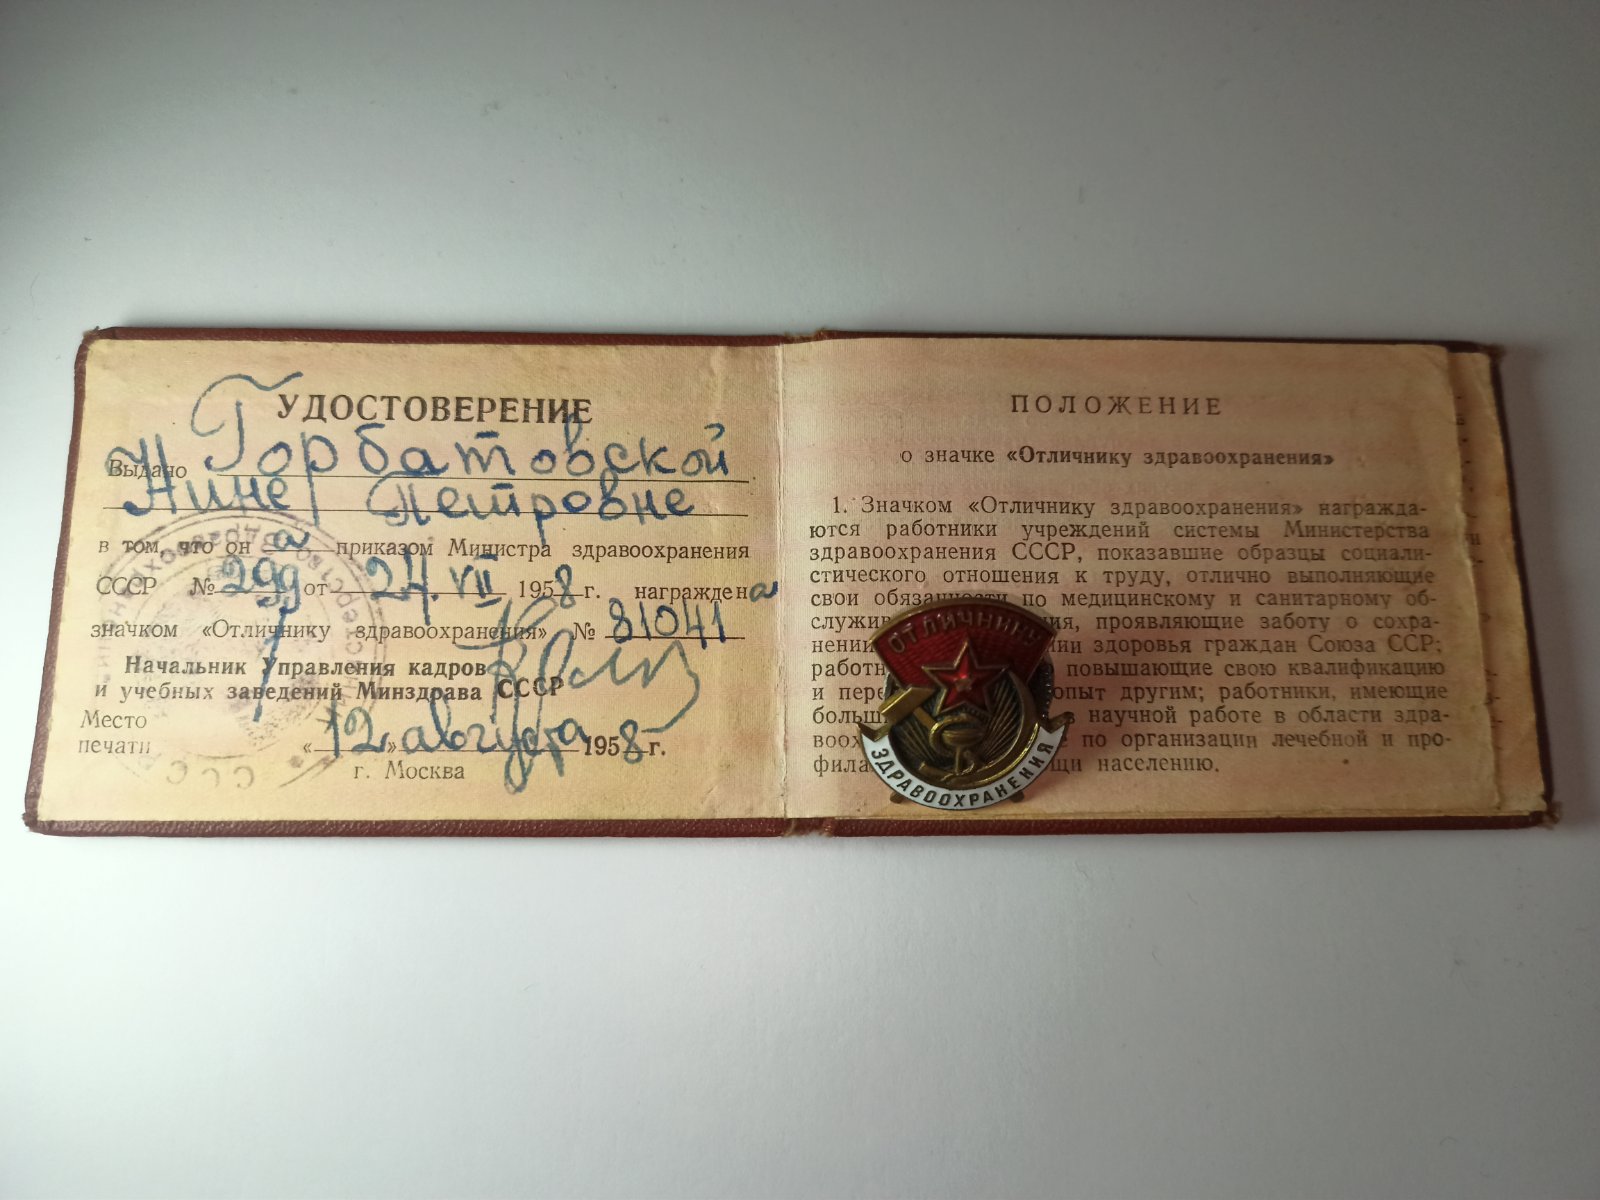 УДОСТОВЕРЕНИЕ
Выдано Горбатовской
Нине Петровне
в том, что она приказом Министра здравоохранения
СССР № 299 от 24. VII 1958 г. награждена
значком «Отличнику здравоохранения» № 81041
Начальник Управления кадров
и учебных заведений Минздрава СССР
Место
печати
«12» августа 1958 г.
г. Москва
ПОЛОЖЕНИЕ
о значке «Отличнику здравоохранения»
1. Значком «Отличнику здравоохранения» награжда-
ются работники учреждений системы Министерства
здравоохранения СССР, показавшие образцы социали-
стического отношения к труду, отлично выполняющие
свои обязанности по медицинскому и санитарному об-
служив ия, проявляющие заботу о сохра-
нении ии здоровья граждан Союза ССР;
работн повышающие свою квалификацию
и пере опыт другим; работники, имеющие
больш в научной работе в области здра-
воох е по организации лечебной и про-
фила щи населению.
ОТЛИЧНИКУ
ЗДРАВООХРАНЕНИЯ